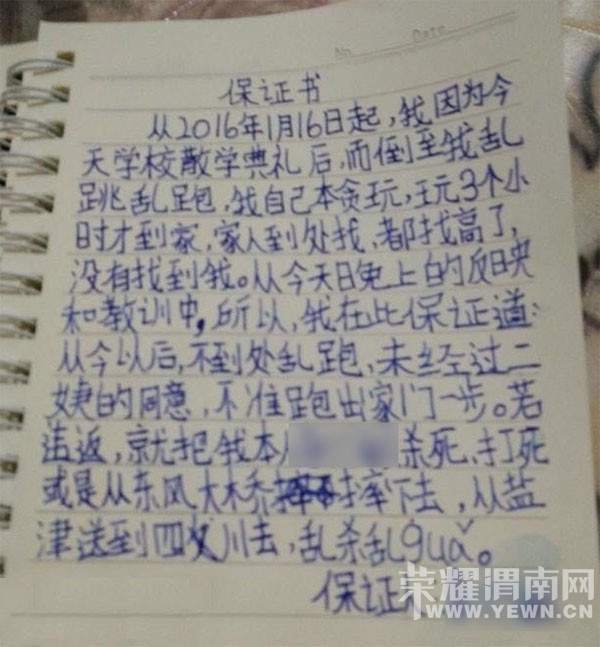 No Date
保证书
从2016年1月16日起,我因为今
天学校散学典礼后,而倒至我乱
跳乱跑,我自己本贪玩,玩3个小
时才到家,家人到处找,都找高了,
没有找到我。从今天日免上的反映
和教训中,所以,我在比保证道:
从今以后,不到处乱跑,未经过二
婕的同意,不准跑出家门一步。若
违返,就把我本人杀死、打死
或是从东风大桥摔下去,从盐
津送到四川去,乱杀乱guǎ。
保证
荣耀渭南网
WWW.YEWN.CN